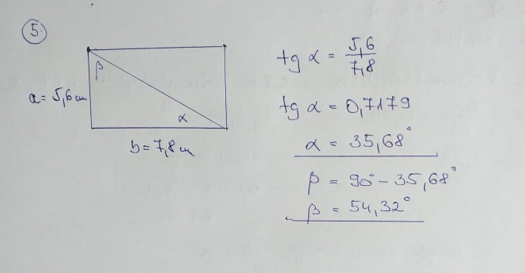 5.
β
a = 5,6 cm
α
b = 7,8 cm
tg α = 5,6 / 7,8
tg α = 0,7179
α = 35,68°
β = 90° - 35,68°
β = 54,32°